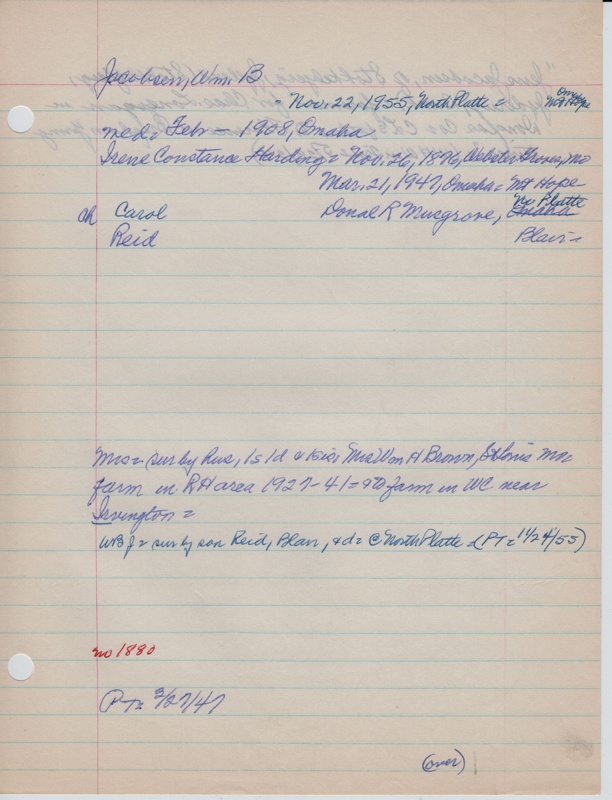 Jacobsen, Wm. B
- Nov. 22, 1955, North Platte = Omaha Mt Hope
med = Feb — 1908, Omaha
Irene Constance Harding = Nov. 26, 1876, Webster Groves, Mo
Mar. 21, 1947, Omaha = Mt Hope
ch Carol Donal R Musgrove, Omaha No Platte
Reid Blair -
Mrs = sur by hus, 1s 1d & sis, Mrs Wm H Brown, St Louis Mo
farm in RH area 1927-41 = to farm in WC near
Irvington =
WBJ = sur by son Reid, Blair, & d = @ North Platte = (PT = 11/24/55)
no 1880
(PT = 3/27/47
(over)